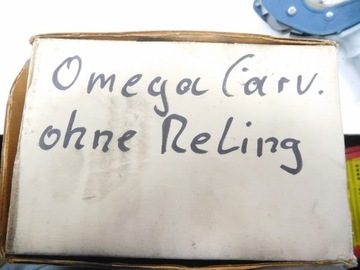 Omega Carv.
ohne Reling